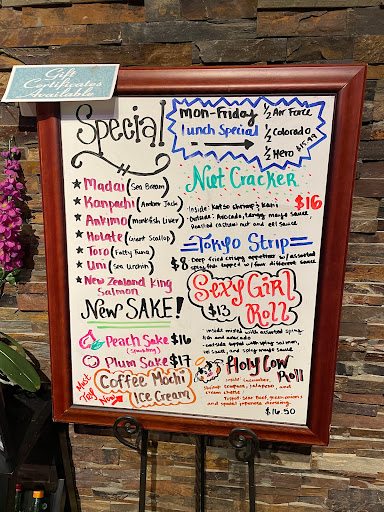 Gift
Certificates
Available
Special
★ Madai (Sea Bream)
★ Kanpachi (Amber Jack)
★ Ankimo (monkfish Liver)
★ Hotate (Giant Scallop)
★ Toro (Fatty Tuna)
★ Uni (Sea Urchin)
★ New Zealand King
Salmon
New SAKE!
Peach Sake $16
(sparkling)
Plum Sake $17
Must Try Now
Coffee Mochi
Ice Cream
Mon-Friday
Lunch Special
1/2 Air Force
1/2 Colorado
1/2 Hero
$15.99
Nut Cracker
$16
-Inside: Katso shrimp & Kani
-Outside: Avocado, tangy mayo sauce,
Roasted cashew nut and eel sauce
Tokyo Strip
$8
Deep fried crispy appetizer w/ assorted
fish topped w/ four different sauce
Sexy Girl
Roll
$13
-inside mixed with assorted spicy
fish and avocado
-outside topped with spicy salmon,
eel sauce, and spicy mayo sauce
Holy Cow
Roll
inside: cucumber,
shrimp tempura, jalapeno, and
cream cheese
Topped: Sear Beef, green onions
and special japanese dressing.
$16.50